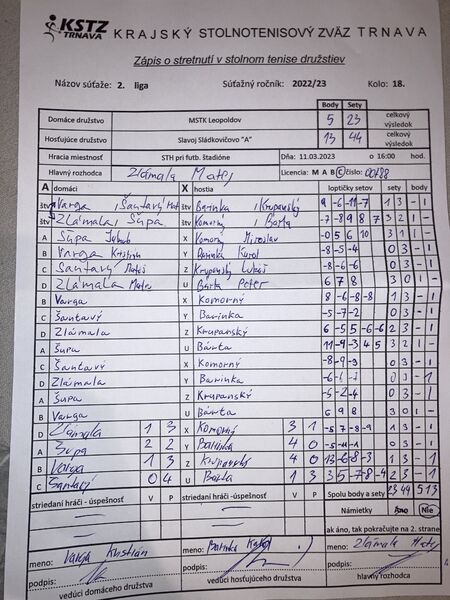 KSTZ TRNAVA KRAJSKÝ STOLNOTENISOVÝ ZVÄZ TRNAVA
Zápis o stretnutí v stolnom tenise družstiev
Názov súťaže: 2. liga Súťažný ročník: 2022/23 Kolo: 18.
Body Sety
Domáce družstvo MSTK Leopoldov 5 23 celkový výsledok
Hosťujúce družstvo Slavoj Sládkovičovo "A" 13 44 celkový výsledok
Hracia miestnosť STH pri futb. štadióne Dňa: 11.03.2023 o 16:00
Hlavný rozhodca Zlámala Matej Licencia: M A B C číslo: 00188
A domáci X hostia loptičky setov sety body
štv Varga , Šantavý Mat štv Barinka , Krupanský 9 -6 -11 -7 1 3 - 1
štv Zlámala , Šupa štv Komorný , Bárta -7 -8 9 8 7 3 2 1 -
A Šupa Jakub X Komorný Miroslav -0 5 6 10 3 1 1 -
B Varga Kristián Y Barinka Karol -8 -5 -4 0 3 - 1
C Šantavý Matúš Z Krupanský Lukáš -8 -6 -6 0 3 - 1
D Zlámala Matej U Bárta Peter 6 7 8 3 0 1 -
B Varga X Komorný 8 -6 -8 -8 1 3 - 1
C Šantavý Y Barinka -5 -7 -2 0 3 - 1
D Zlámala Z Krupanský 6 -5 5 -6 -6 2 3 - 1
A Šupa U Bárta 11 -9 -3 4 5 3 2 1 -
C Šantavý X Komorný -8 -9 -3 0 3 - 1
D Zlámala Y Barinka 0 3 - 1
A Šupa Z Krupanský -5 -2 -4 0 3 - 1
B Varga U Bárta 6 9 8 3 0 1 -
D Zlámala 1 3 X Komorný 3 1 -5 7 -8 -9 1 3 - 1
A Šupa 2 2 Y Barinka 4 0 -5 -11 -1 0 3 - 1
B Varga 1 3 Z Krupanský 4 0 -13 -6 8 -3 1 3 - 1
C Šantavý 0 4 U Bárta 1 3 3 5 -7 -8 -4 2 3 - 1
striedaní hráči - úspešnosť V P striedaní hráči - úspešnosť V P Spolu body a sety 23 44 5 13
Námietky Áno Nie
ak áno, tak pokračujte na 2. strane
meno: Varga Kristián meno: Barinka Karol meno: Zlámala Matej
podpis: podpis: podpis:
vedúci domáceho družstva vedúci hosťujúceho družstva hlavný rozhodca